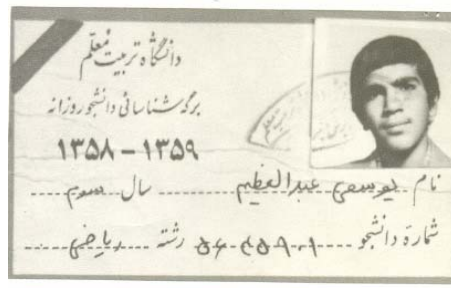 دانشگاه تربیت معلّم
برگ شناسائی دانشجو روزانه
۱۳۵۸ - ۱۳۵۹
نام یوسفی عبدالعظیم سال سوم
شمارهٔ دانشجو رشته ریاضی